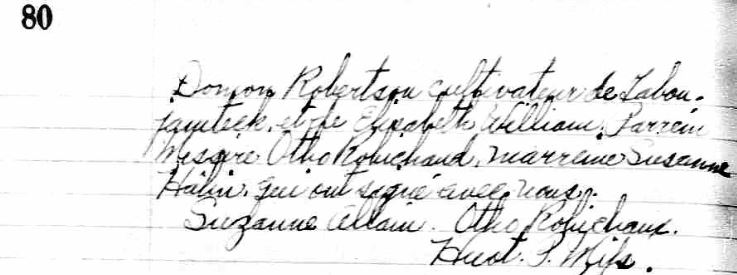 80
Domon Robertson cultivateur de Tabou-
jamteek, et de Elisabeth William. Parrein
Messire Otho Robichaud, marreine Susanne
Hâlin. qui ont signé avec nous.
Suzanne Allain. Otho Robichaux.
Huot. P. Miss.